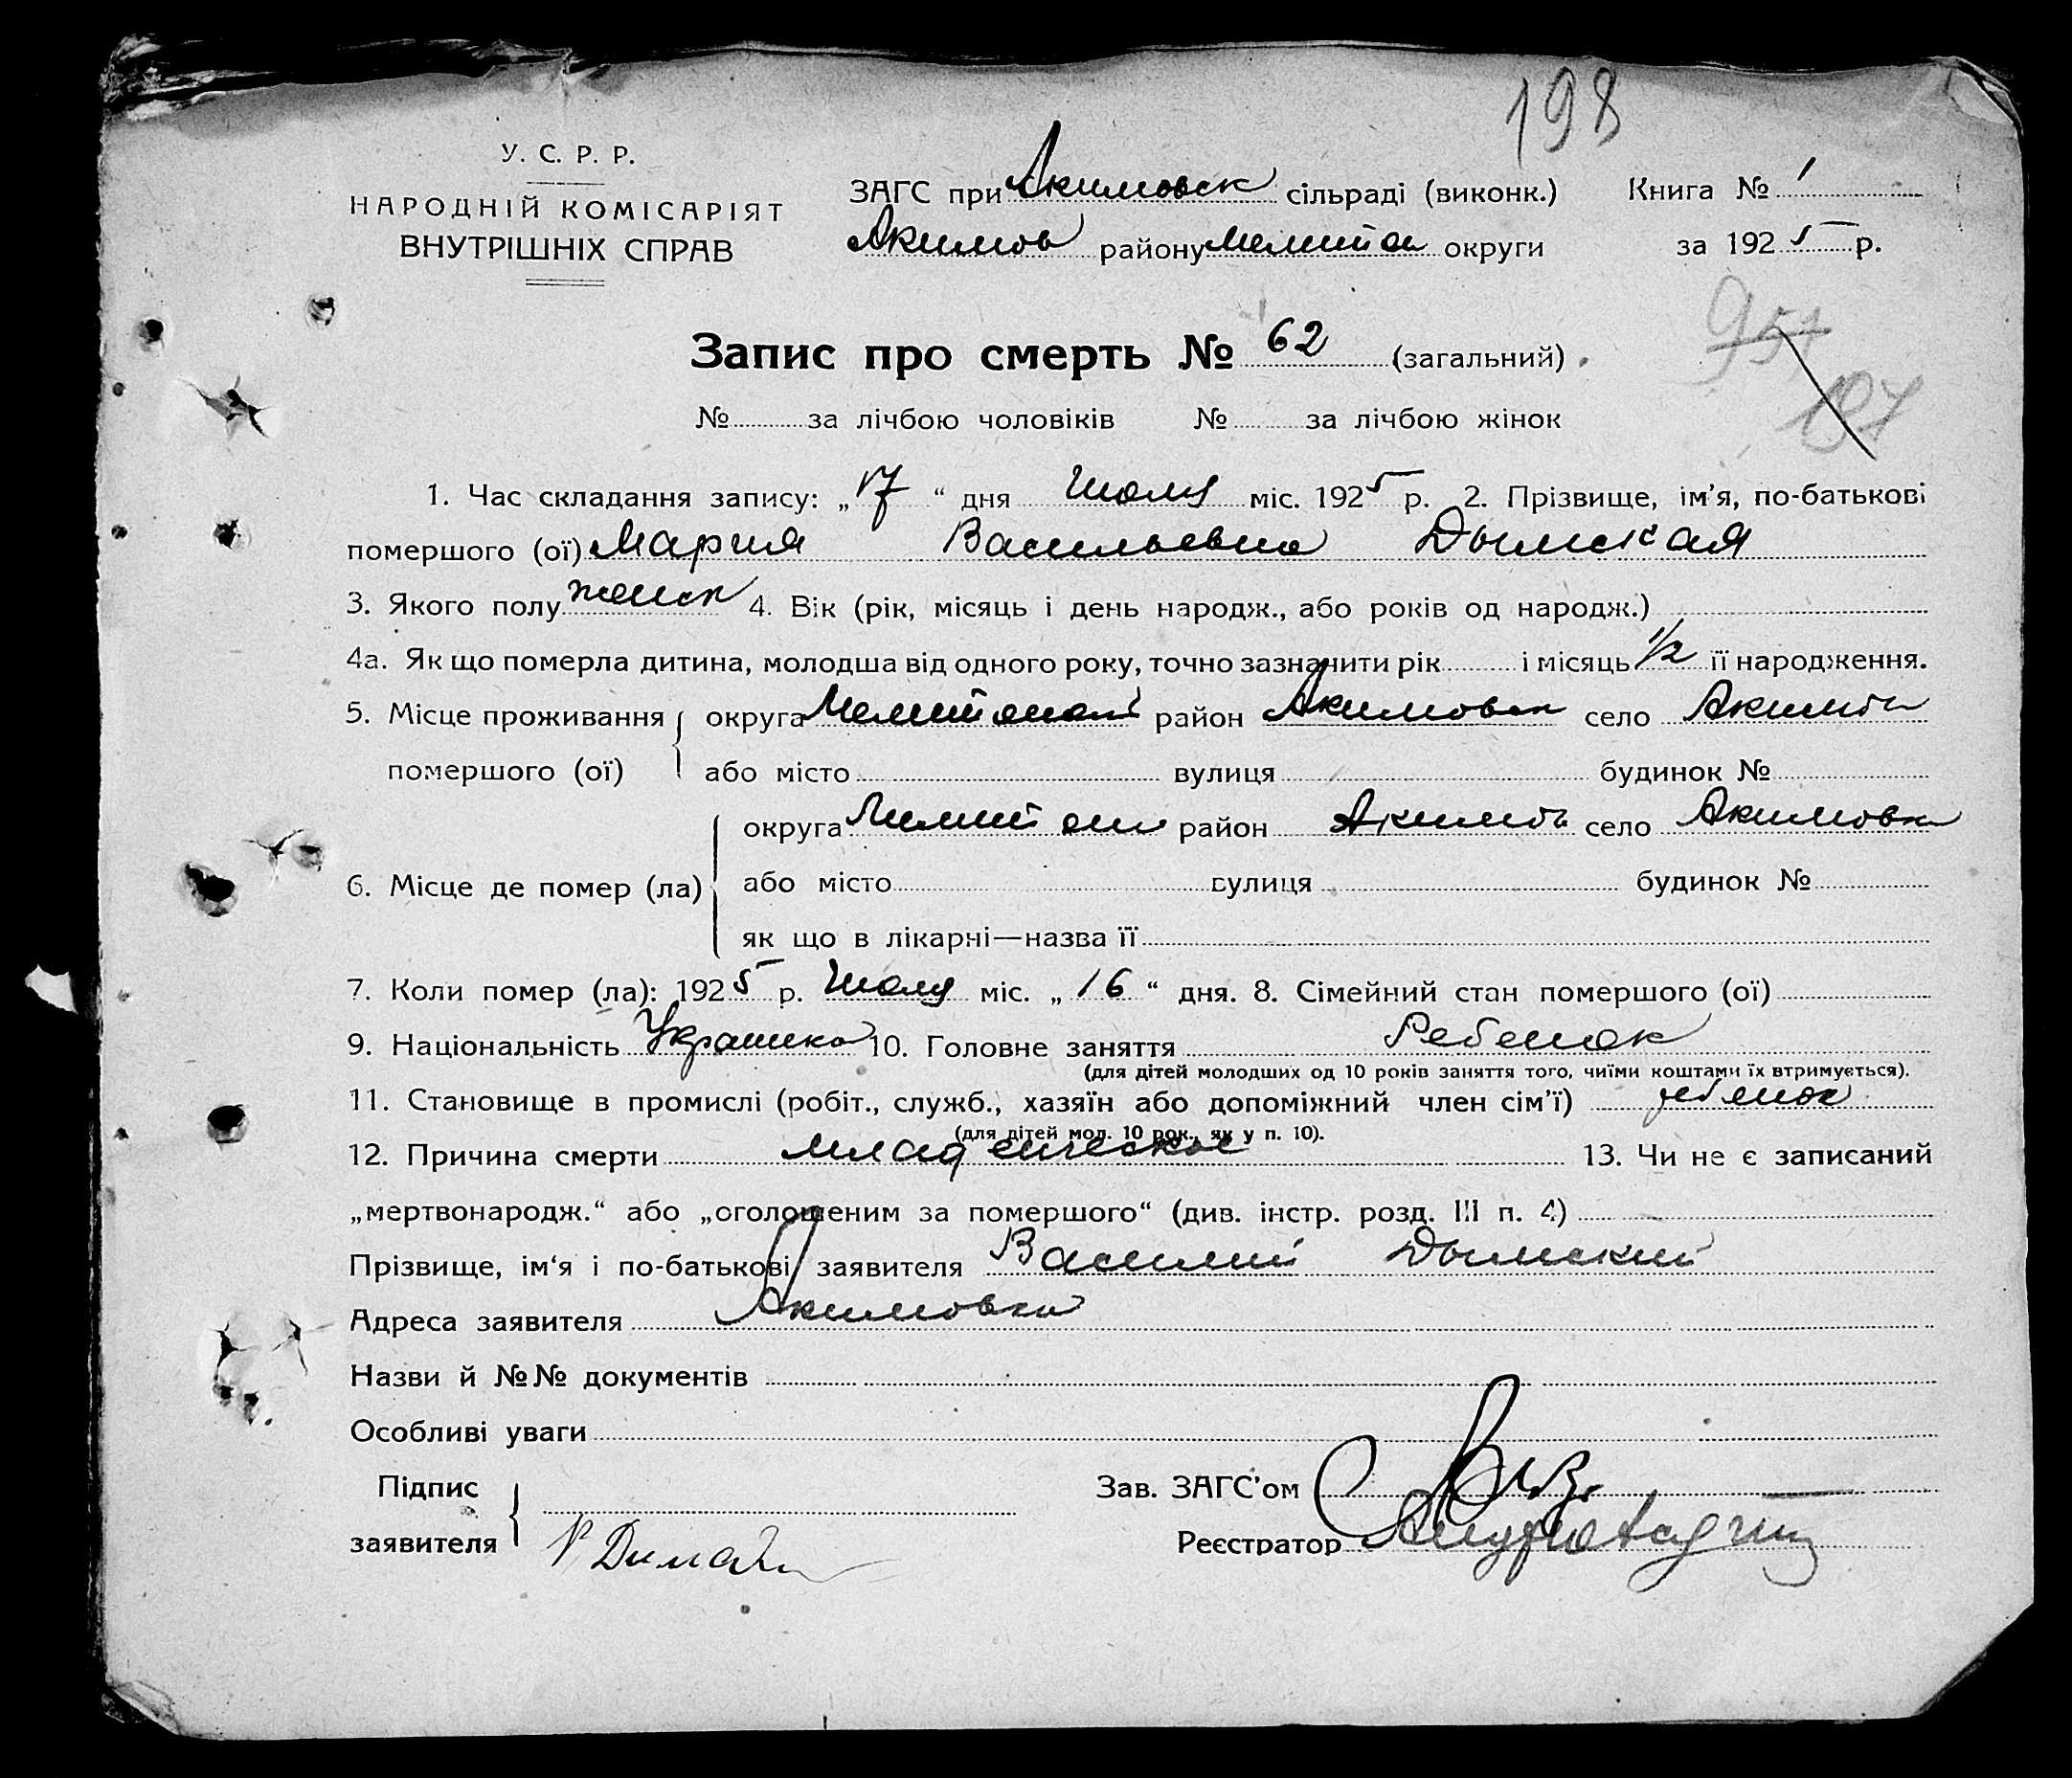 198
У. С. Р. Р.
НАРОДНІЙ КОМІСАРІЯТ
ВНУТРІШНІХ СПРАВ
ЗАГС при Акимовск сільраді (виконк.) Книга № 1
Акимов району Мелитоп округи за 1925 р.
957
187
Запис про смерть № 62 (загальний)
№ за лічбою чоловіків № за лічбою жінок
1. Час складання запису: „17“ дня Июля міс. 1925 р. 2. Прізвище, ім’я, по-батькові
помершого (ої) Мария Васильевна Дымская
3. Якого полу женск 4. Вік (рік, місяць і день народж., або років од народж.)
4а. Як що померла дитина, молодша від одного року, точно зазначити рік і місяць 1/2 її народження.
5. Місце проживання округа Мелитопол район Акимовск село Акимов
помершого (ої) або місто вулиця будинок №
округа Мелитоп район Акимов село Акимовка
6. Місце де помер (ла) або місто вулиця будинок №
як що в лікарні—назва її
7. Коли помер (ла): 1925 р. Июля міс. „16“ дня. 8. Сімейний стан помершого (ої)
9. Національність Украинка 10. Головне заняття Ребенок
(для дітей молодших од 10 років заняття того, чиїми коштами їх втримується).
11. Становище в промислі (робіт., служб., хазяїн або допоміжний член сім’ї) ребенок
(для дітей мол. 10 рок., як у п. 10).
12. Причина смерти младенческое 13. Чи не є записаний
„мертвонародж.“ або „оголошеним за помершого“ (див. інстр. розд. III п. 4)
Прізвище, ім‘я і по-батькові заявителя Василий Дымский
Адреса заявителя Акимовка
Назви й №№ документів
Особливі уваги
Підпис Зав. ЗАГС’ом
заявителя Реєстратор